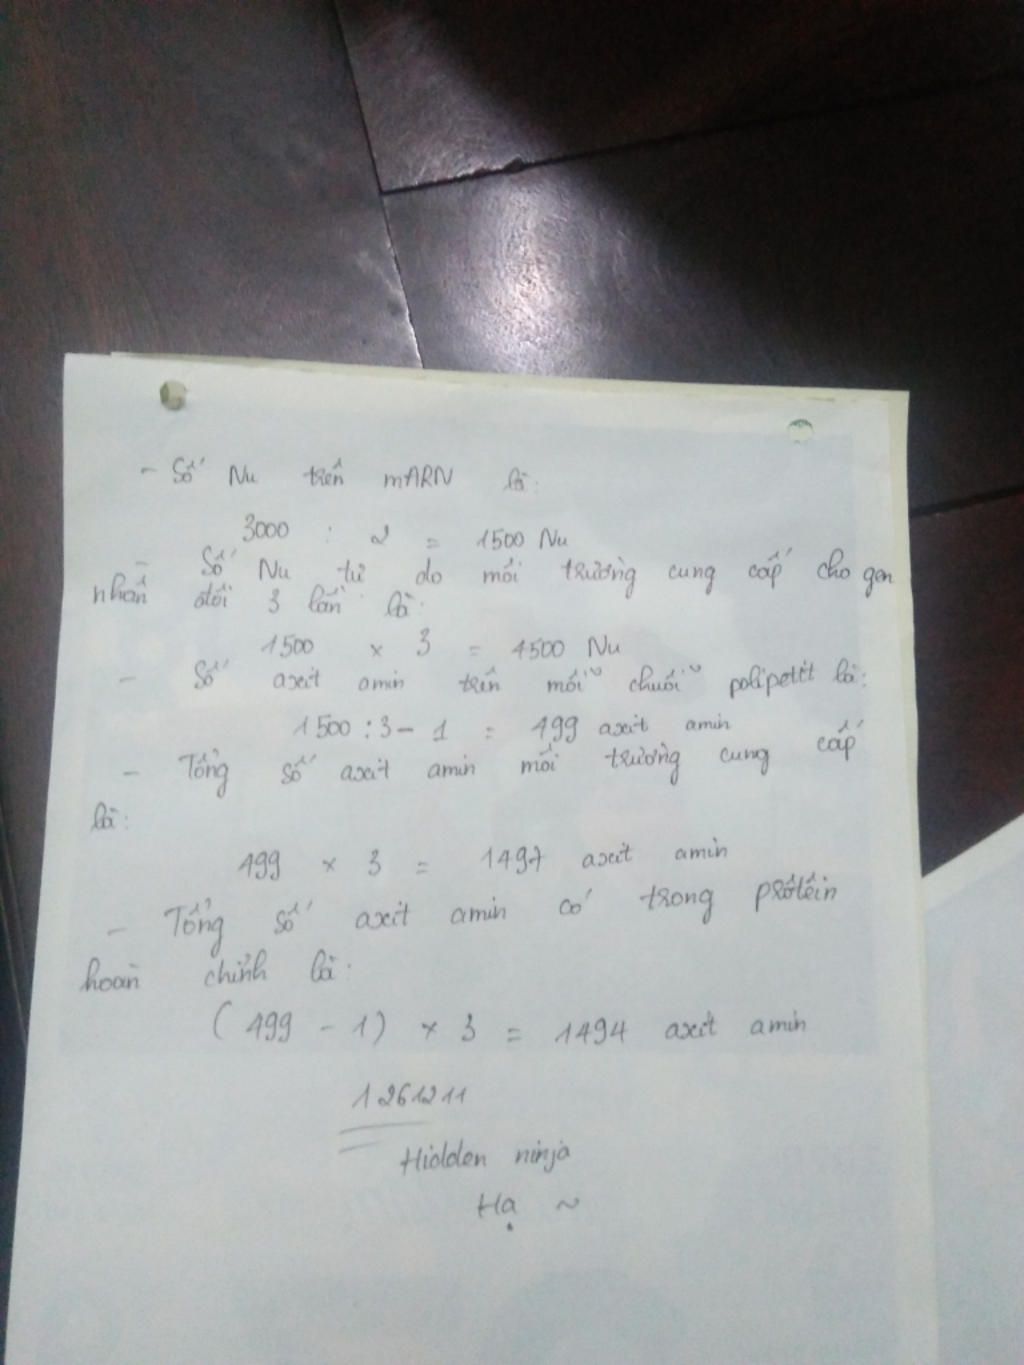 - Số Nu trên mARN là:
3000 : 2 = 1500 Nu
- Số Nu tự do môi trường cung cấp cho gen
nhân đôi 3 lần là:
1500 x 3 = 4500 Nu
- Số axit amin trên mỗi chuỗi polipetit là:
1500 : 3 - 1 = 499 axit amin
- Tổng số axit amin môi trường cung cấp
là:
499 x 3 = 1497 axit amin
- Tổng số axit amin có trong prôtêin
hoàn chỉnh là:
(499 - 1) x 3 = 1494 axit amin
1261211
Hidden ninja
Hạ ~